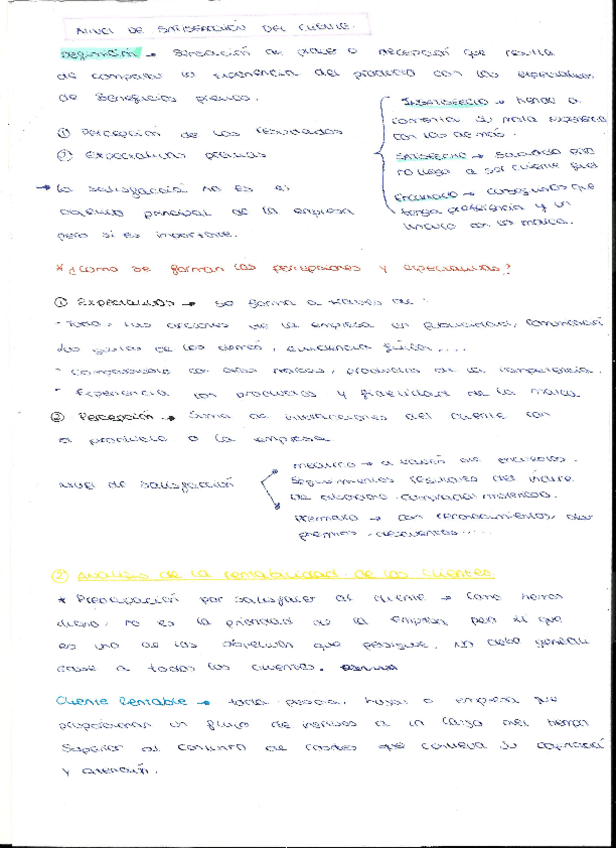 NIVEL DE SATISFACCIÓN DEL CLIENTE.
Definición → Sensación de placer o decepción que resulta
de comparar la experiencia del producto con las expectativas
de beneficios previos.
① Percepción de los resultados
② Expectativas previas
→ La satisfacción no es el
objetivo principal de la empresa
pero si es importante.
Insatisfecho → tiende a
comentar su mala experiencia
con los demás.
Satisfecho → 
no llega a ser cliente fiel
Encantado → conseguimos que
tenga preferencia y un
vínculo con la marca.
* ¿Como se forman las percepciones y expectativas?
① Expectativas → se forma a través de:
· Todo, las acciones de la empresa en publicidad, 
los gustos de los demás, 
· con otras marcas, productos de la competencia.
· Experiencia con productos y de la marca.
② Percepción → Suma de interacciones del cliente con
el producto o la empresa
Nivel de satisfacción
medirlo → a través de encuestas.
Seguimientos regulares del índice
de 
Premiarlo → con reconocimientos, 
premios, descuentos.....
② Análisis de la rentabilidad de los clientes.
* Preocupación por satisfacer al cliente → Como hemos
dicho, no es la prioridad de la empresa pero si que
es uno de los objetivos que persigue, 
a todos los clientes.
Cliente Rentable → toda persona, hogar o empresa que
proporcionan un flujo de ingresos a lo largo del tiempo
superior al conjunto de costes que conlleva su captación
y atención.